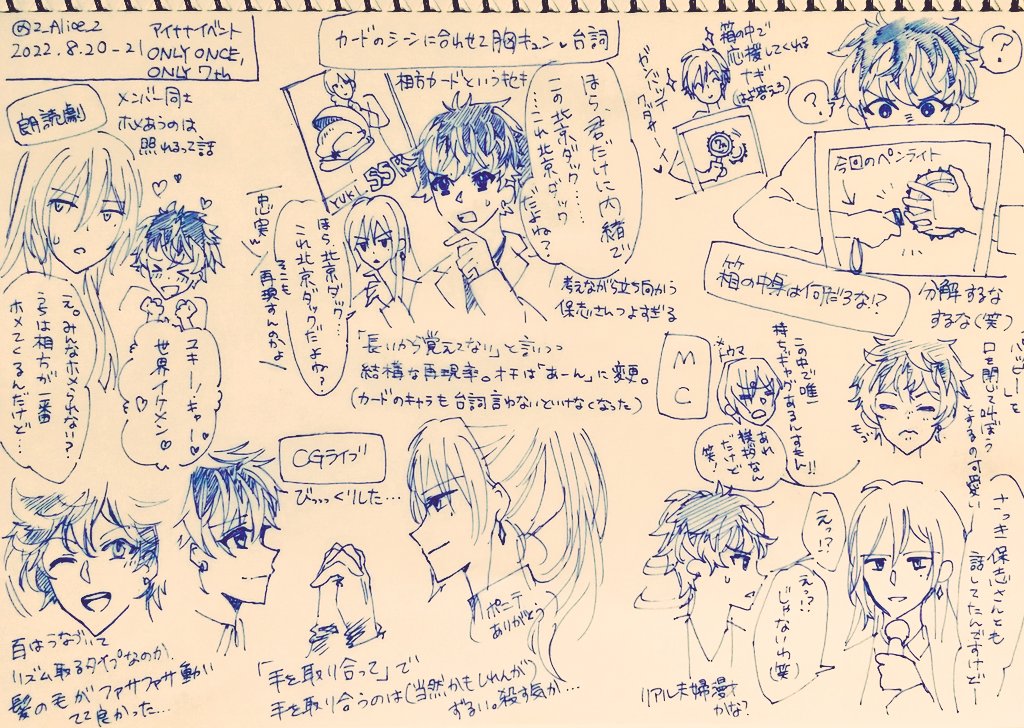 @2_Alice_2
2022.8.20-21
アイナナイベント
ONLY ONCE,
ONLY 7th
朗読劇
メンバー同士
ホメあうのは
照れるって話
え。みんなホメられない?
うちは相方が一番
ホメてくるんだけど…
ユキーッキャー♡
世界一イケメン♡
カードのシーンに合わせて胸キュン♡台詞
相方カードという忖も
YUKI SSR
ほら、君だけに内緒で
この北京ダック……
…これ北京ダック
だよね?
ほら、北京ダック…
これ北京ダックだよね?
そこも
忠実
再現すんのかよ
考えながら立ち向かう
保志さんつよすぎる
「長いから覚えてない」と言いつつ
結構な再現率。オチは「あーん」に変更。
(カードのキャラも台詞言わないといけなくなった)
箱の中で
応援してくれる
ナギ
(は答えろ)
ガンバッテ
クダサイ
7th
?
?
今回のペンライト
箱の中身は何だろな!?
分解するな
するな(笑)
MC
トウマ
この中で唯一
持ちギャグあるんすもん!!
あれ
挨拶なん
だけど
笑!
モゴ
を
口を閉じて叫ぼう
とするの可愛い
さっき保志さんとも
話してたんですけどー
えっ!?
えっ?
じゃないわ(笑)
リアル夫婦漫才
かな?
CGライブ
びっっくりした…
ポニテ
ありがとう
百はうなづいて
リズム取るタイプなのか
髪の毛がファサファサ動い
てて良かった…
「手を取り合って」で
手を取り合うのは(当然かもしれんが)
ずるい。殺す気か…